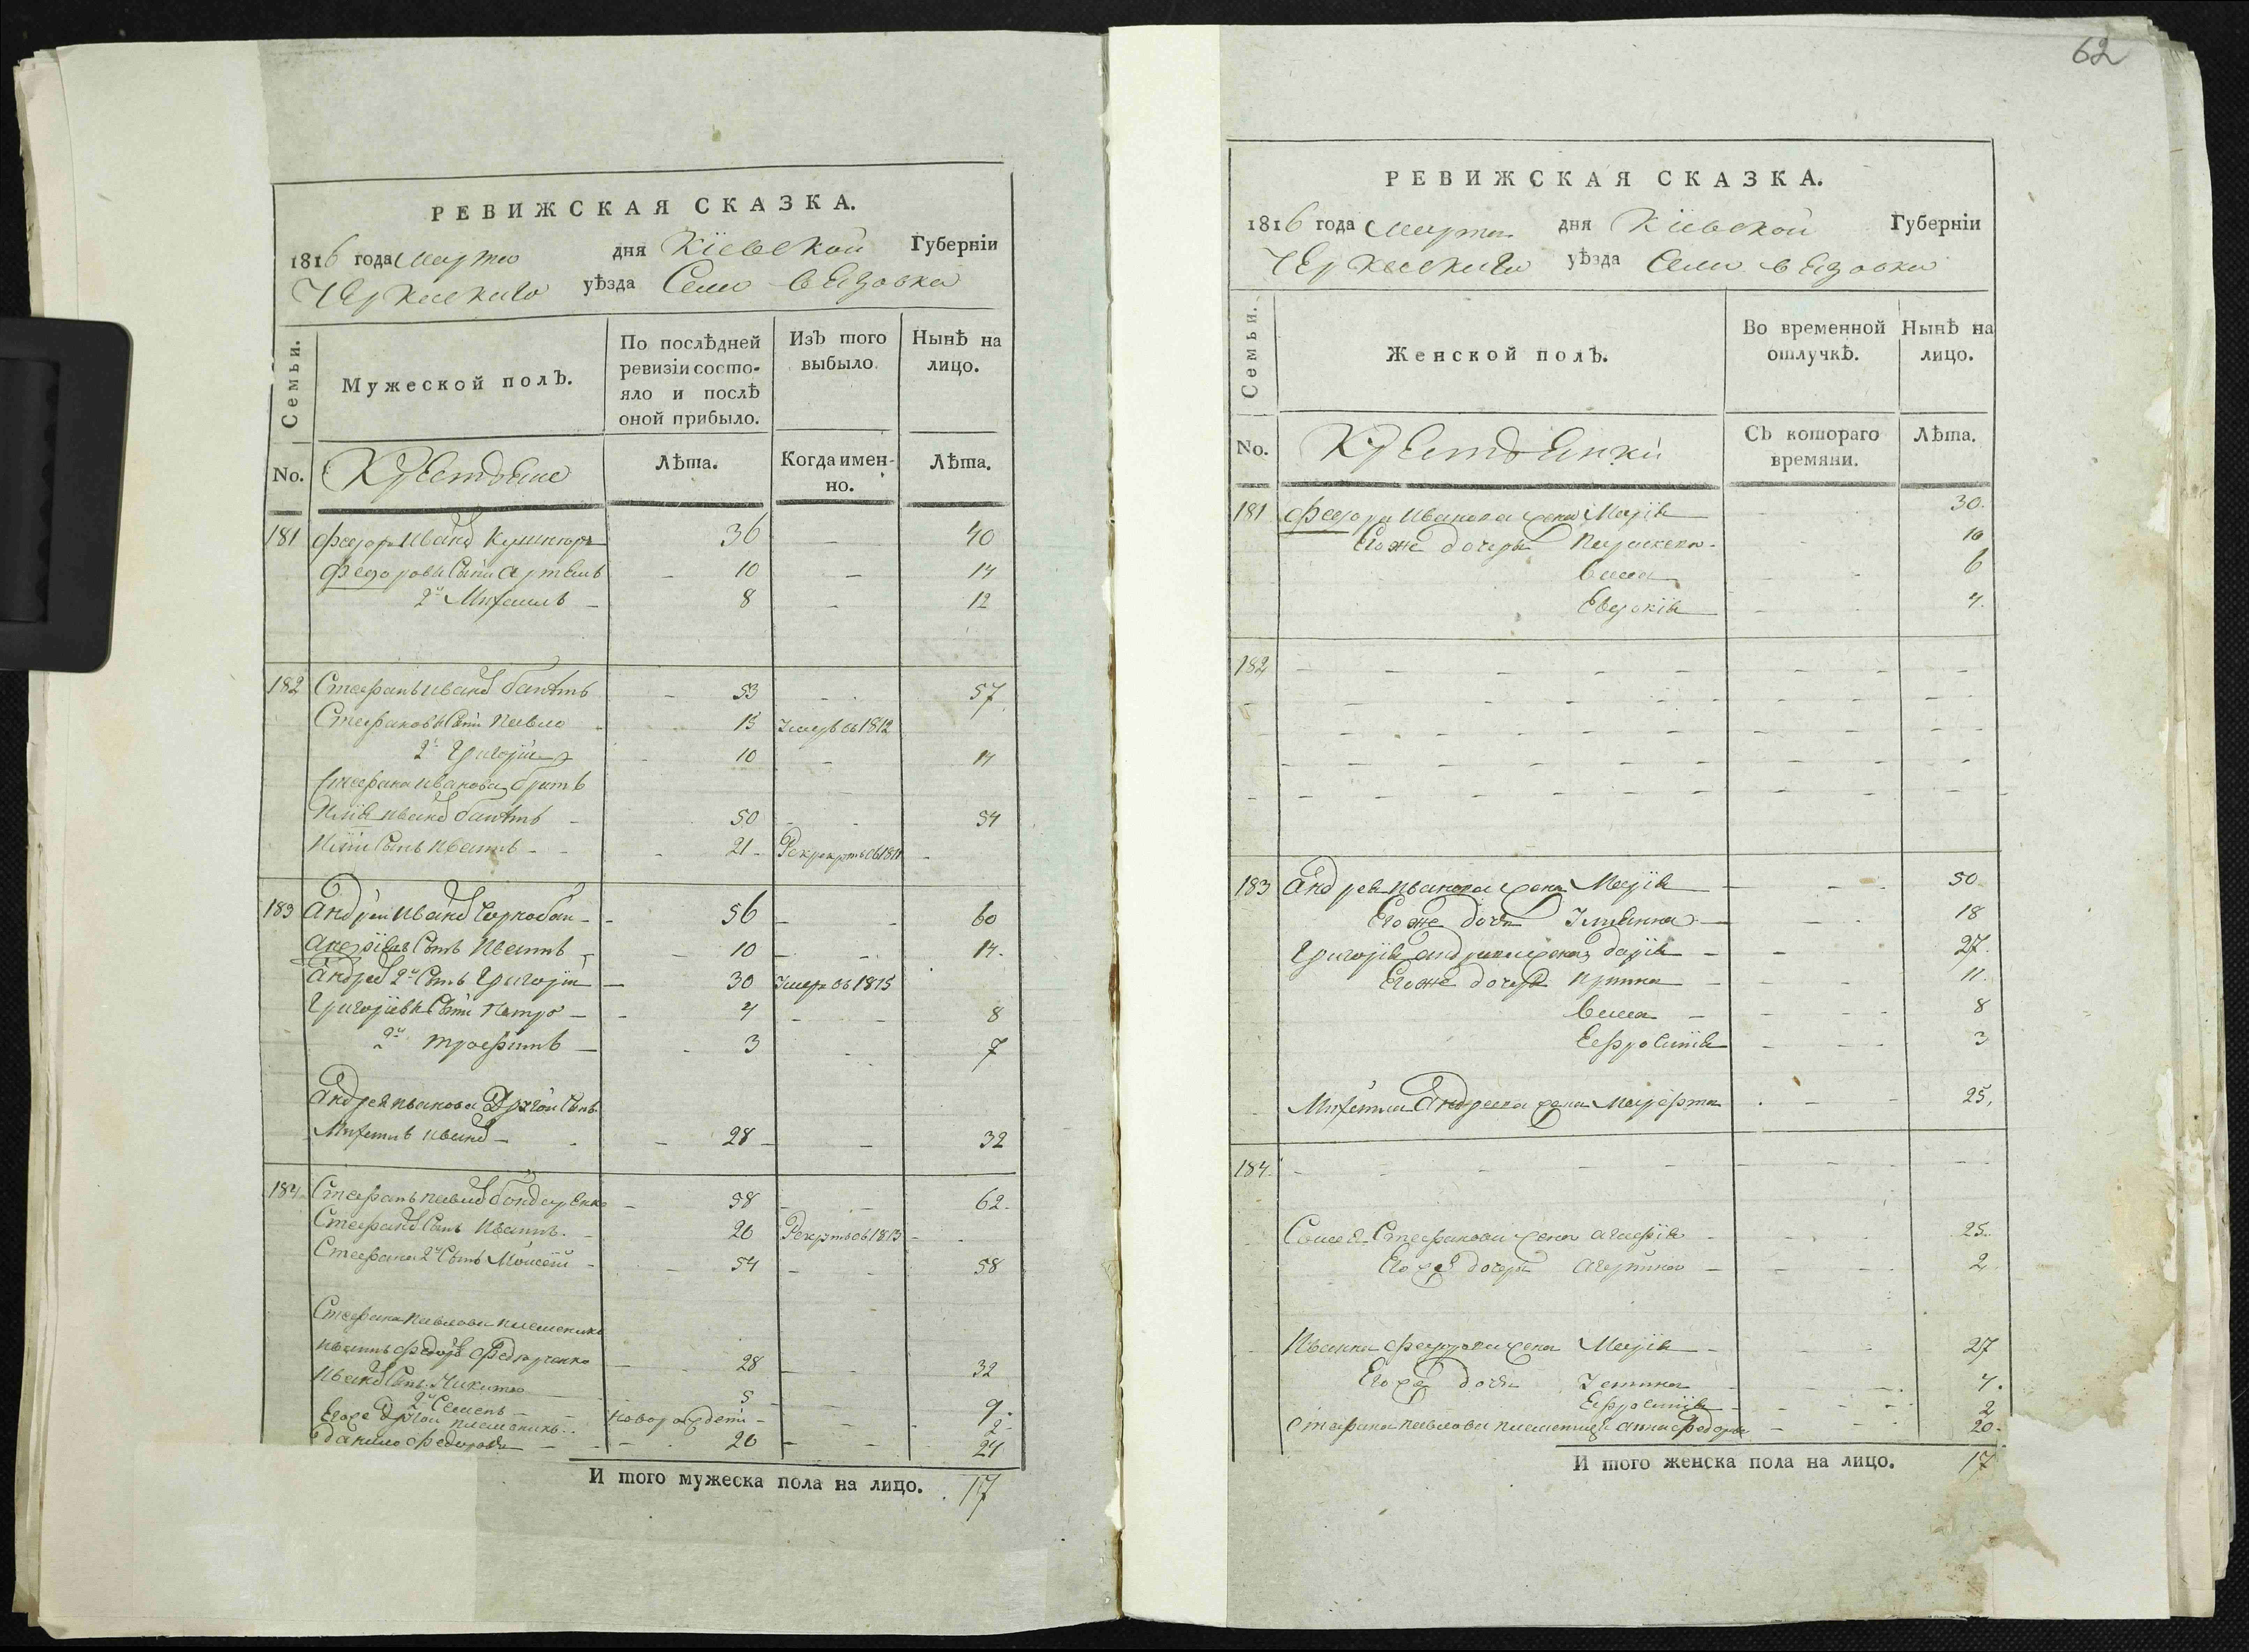 62
РЕВИЖСКАЯ СКАЗКА.
1816 года Марта дня Кіевской Губерніи
Черкаскаго уѣзда Села Вязовка
Семьи. Мужеской полъ. По послѣдней ревизіи состояло и послѣ оной прибыло. Изъ того выбыло. Нынѣ на лицо.
No. Крестьяне Лѣта. Когда именно. Лѣта.
181 Федоръ Иванъ 36 — 40
Федоровы Сыни Артемъ — 10 — 14
2й Михаилъ — 8 — 12
182 Стефанъ Иванъ — 53 — 57
Стефановы Сыни Павло 15 Умеръ въ 1812
2й Григорій 10 — 14
Стефана Иванова братъ
Илія Иванъ — 50 — 54
Иліи Сынъ Иванъ — 21 Рекрутъ въ 1811 —
183 Андрей Иванъ — 56 — 60
Андріевъ Сынъ Иванъ — 10 — 14.
Андре 2й Сынъ Григорій — 30 Умеръ въ 1815
Григоріевы Сыни Петро — 4 — 8
2й Трофимъ — 3 7
Андрея Иванова Другой Сынъ
Михаилъ Иванъ — 28 — 32
184 Стефанъ Павлъ Бондаренко — 58 — 62.
Стефанъ Сынъ Иванъ — 20 Рекрутъ въ 1813 —
Стефана 2й Сынъ Моисей — 54 — 58
Стефана Павлова племеникъ
Иванъ Федоръ Федорченко — 28 — 32
Иванъ Сынъ Никита 5 — 9.
2й Семенъ — новорожденъ — 2
Егоже Другой племеникъ
Данило Федоровъ — 20 — 24
И того мужеска пола на лицо. 17
РЕВИЖСКАЯ СКАЗКА.
1816 года Марта дня Кіевской Губерніи
Черкаскаго уѣзда Села Вязовка
Семьи. Женской полъ. Во временной отлучкѣ. Нынѣ на лицо.
No. Крестьянки Съ котораго времяни. Лѣта.
181 Федора Иванова жена Марія — 30.
Егоже дочеры Параскева — 10
Васса — 6
Евдокія — 4.
182
183 Андрея Иванова жена Марія — 50
Егоже дочь Устинна — 18
Григорія Андреева жена Дарія — 27.
Егоже дочеры Ирина — 11.
Васса — 8
Ефросинія — 3
Михаила Андреева жена Марфа — 25.
184.
Стефанова жена Агафія — 25.
Егоже дочеръ — 2.
Ивана Федорова жена Марія — 27
Егоже дочь — 4.
Ефросинія — 2
Стефана Павлова племеница Анна Федоры — 20.
И того женска пола на лицо. 17